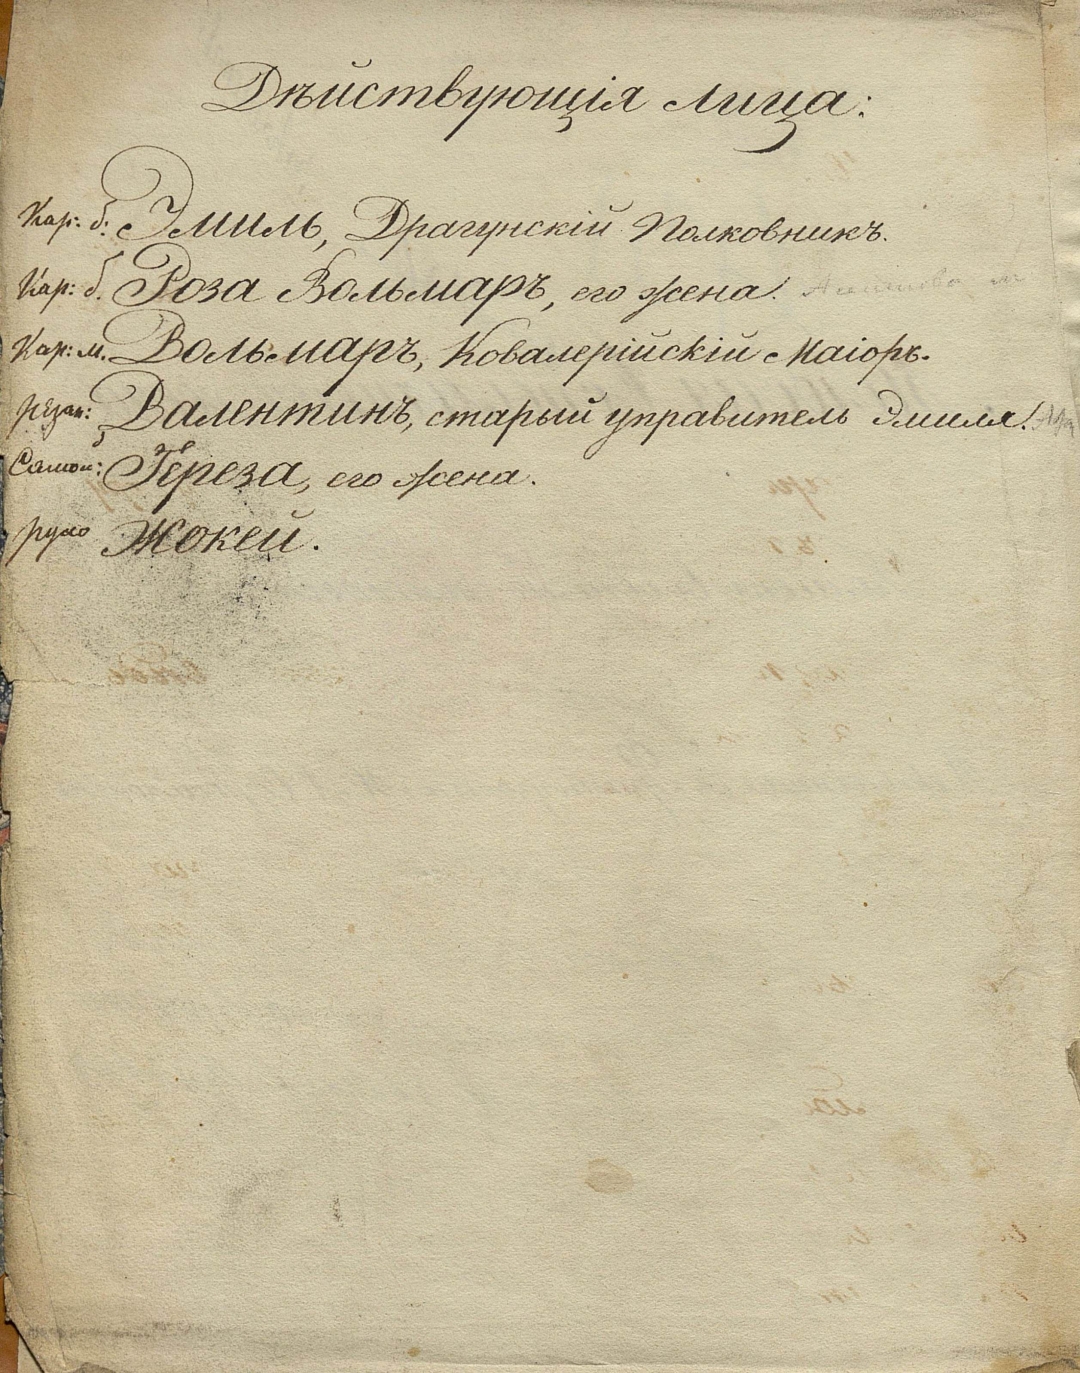 Дѣйствующія лица:
Кар: б: Эмиль, Драгунскій Полковникъ.
Кар: б. Роза Вольмаръ, его жена.
Кар: м. Вольмаръ, Ковалерійскій Маіоръ.
рѣзан: Валентинъ, старый управитель Эмиля.
Самой: Тереза, его жена.
Жокей.